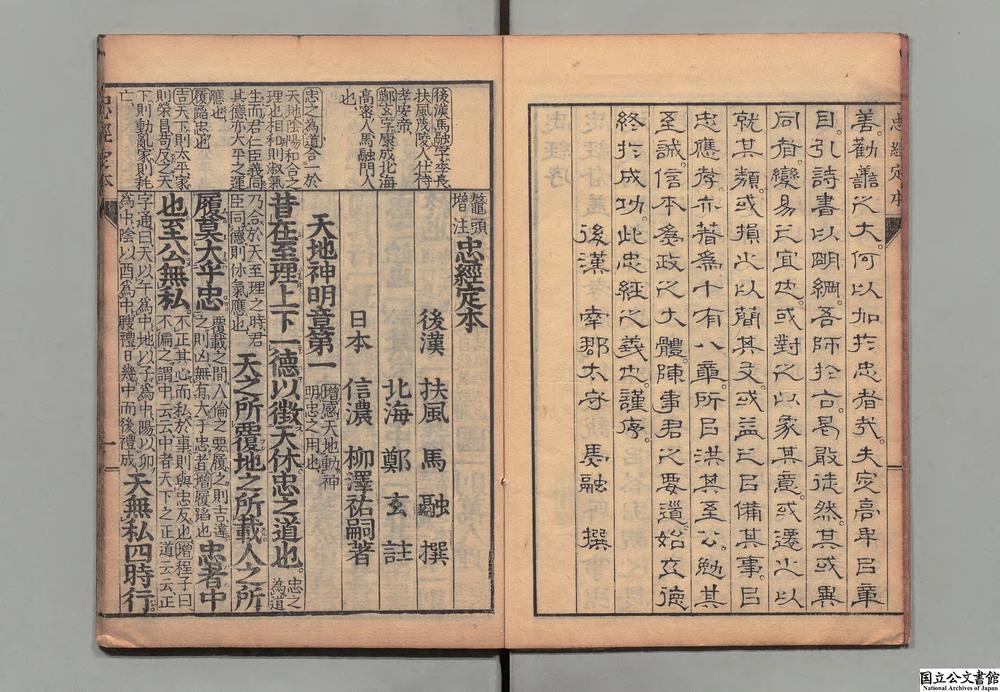 善。勸善之大。何以加於忠者哉。夫定高卑以章
目。引詩書以明綱。吾師於古。曷敢徒然。其或異
同者。變易之宜也。或對之以象其意。或遷之以
就其類。或損之以簡其文。或益之以備其事。以
忠應孝。亦著爲十有八章。所以洪其至公。勉其
至誠。信本爲政之大體。陳事君之要道。始立德
終於成功。此忠經之義也。謹序。
後漢 南郡太守 馬融 撰
忠經定本
後漢馬融字季長
扶風茂陵人仕侍
孝安帝
鄭玄字康成北海
高密人馬融門人
也
忠之為道合一於
天地陰陽和合之
理也相和則淑氣
生而君仁臣義同
其德亦大平之運
應也
履蹈忠也
吉天下則太平家
則榮昌苟反之天
下則動亂家則耗
亡
鼇頭
增注
忠經定本
後漢 扶風 馬融 撰
北海 鄭玄 註
日本 信濃 柳澤祐嗣著
天地神明章第一
增感天地動神
明忠之用也
昔在至理上下一德以徵天休忠之道也。
忠之
為道
乃合於天至理之時君
臣同德則休氣應也
天之所覆地之所載人之所
履莫大乎忠
覆載之間人倫之要履之則吉違
之則凶無有大于忠者增履蹈也
忠者中
也至公無私。
不正其心而私於事則與忠反也增程子曰
不偏之謂中云云中者天下之正道云云正
字通曰天以午爲中地以子爲中陽以卯
爲中陰以酉爲中膄禮日幾中而後禮成
天無私四時行。
忠經定本
一
国立公文書館
National Archives of Japan